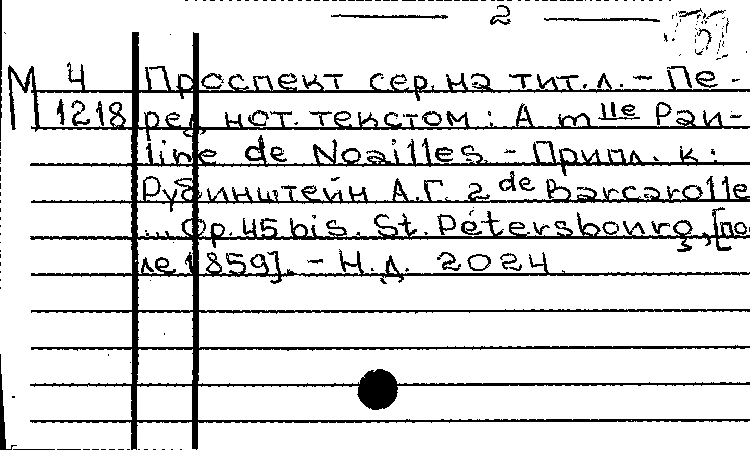 — 2 —
М 4 Проспект сер. на тит. л. – Пе-
1218 ред нот. текстом: A mlle Pau-
line de Noailles – Припл. к:
Рубинштейн А.Г. 2de Barcarolle
... Op. 45 bis. St. Pétersbourg, [пос-
ле 1859]. – Н.д. 2024.